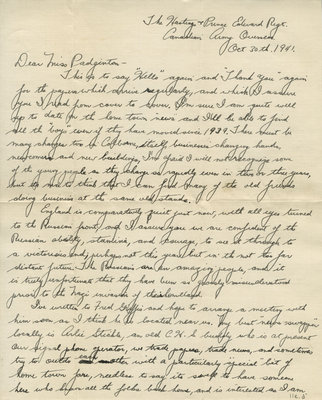 The Hastings & Prince Edward Regt.
Canadian Army Overseas
Oct 30th, 1941.
Dear Miss Padginton -
This is to say "Hello" again and "Thank You" again
for the papers which arrive regularly, and which I assure
you I read from cover to cover. I'm sure I am quite well
up to date on the home town news and I'll be able to find
all the boys even if they have moved since 1939. There must be
many changes too in Colborne, business changing hands,
newcomers and new buildings, I'm afraid I will not recognize some
of the young people as they change so rapidly even in two or three years,
but to me to think that I can find many of the old friends
doing business at the same old stands.
England is comparatively quiet just now, with all eyes turned
to the Russian front, and I assure you we are confident of the
Russians ability, stamina, and courage, to see it through
to a victorious end, perhaps not this year but in the not too far
distant future. The Russians are an amazing people, and it
is truly unfortunate that they have been so grossly misunderstood
prior to the Nazi invasion of their homeland.
I've written to Fred and hope to arrange a meeting with
him soon as I think he is located near us. My best "news"
locally is Arlie, an old C.H.S. who is at present
our signal phone operator, we trade papers, trade news, and sometimes
try to outdo each another with a particularly "special" bit of
home town fare, needless to say its to have someone
here who knows all the folks back home, and is interested as I am